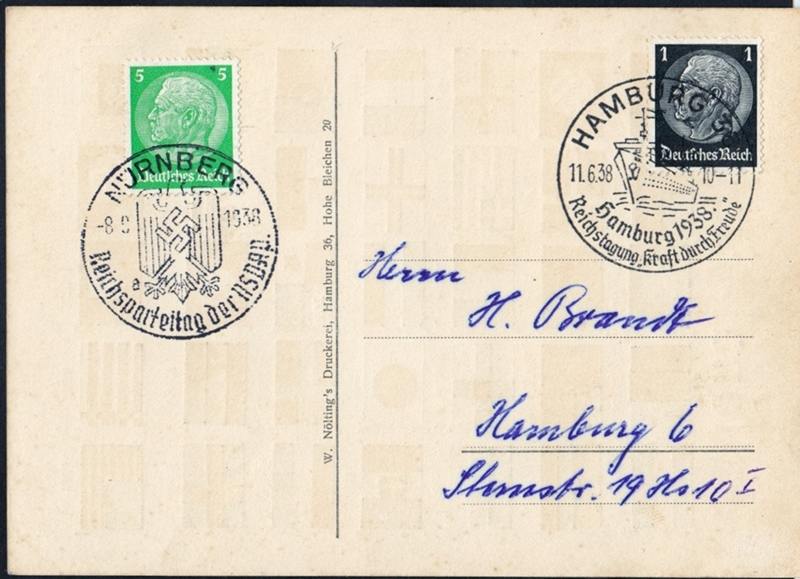 5 5
Deutsches Reich
NÜRNBERG
1938
a
Reichsparteitag der NSDAP.
W. Nölting's Druckerei, Hamburg 36, Hohe Bleichen 20
1 1
Deutsches Reich
HAMBURG
11.6.38 10-11
Hamburg 1938.
Reichstagung „Kraft durch Freude“
Herrn
H. Brandt
Hamburg 6
Sternstr. 19 Hs 10 I